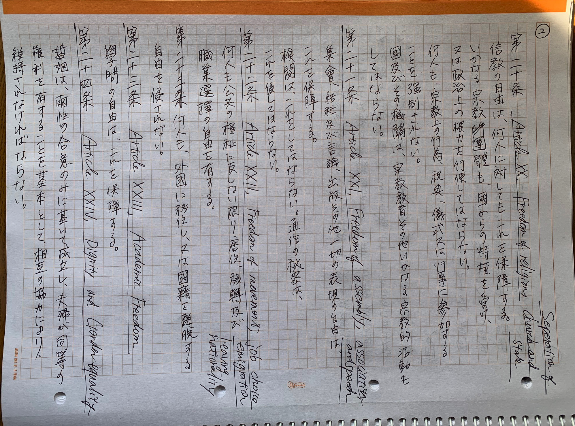 ②
第二十条 Article XX. Freedom of religion, Separation of Church and State
信教の自由は、何人に対してもこれを保障する。
いかなる宗教団体も、国から特権を受け、
又は政治上の権力を行使してはならない。
何人も、宗教上の行為、祝典、儀式又は行事に参加する
ことを強制されない。
国及びその機関は、宗教教育その他いかなる宗教的活動も
してはならない。
第二十一条 Article XXI. Freedom of assembly, association, and speech
集会、結社及び言論、出版その他一切の表現の自由は
これを保障する。
検閲は、これをしてはならない。通信の秘密は、
これを侵してはならない。
第二十二条 Article XXII Freedom of movement, job choice, emigration, leaving nationality
何人も公共の福祉に反しない限り、居住、移転及び
職業選択の自由を有する。
第二十二条 何人も、外国に移住し、又は国籍を離脱する
自由を侵されない。
第二十三条 Article XXIII. Academic Freedom
学問の自由は、これを保障する。
第二十四条 Article XXIV Dignity and Gender equality
婚姻は、両性の合意のみに基いて成立し、夫婦が同等の
権利を有することを基本として、相互の協力により、
維持されなければならない。